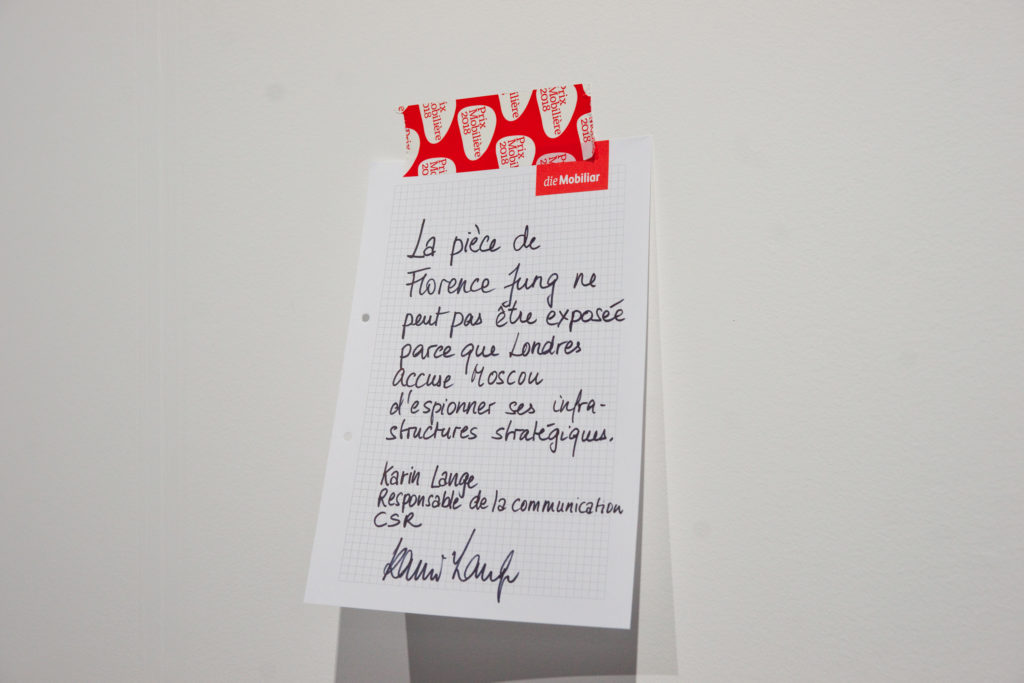 Prix
Mobilière
2018
Prix
Mobilière
2018
Prix
Mobilière
2018
Prix
Mobilière
2018
2018
die Mobiliar
La pièce de
Florence Jung ne
peut pas être exposée
parce que Londres
accuse Moscou
d'espionner ses infra-
structures stratégiques.
Karin Lange
Responsable de la communication
CSR
Karin Lange